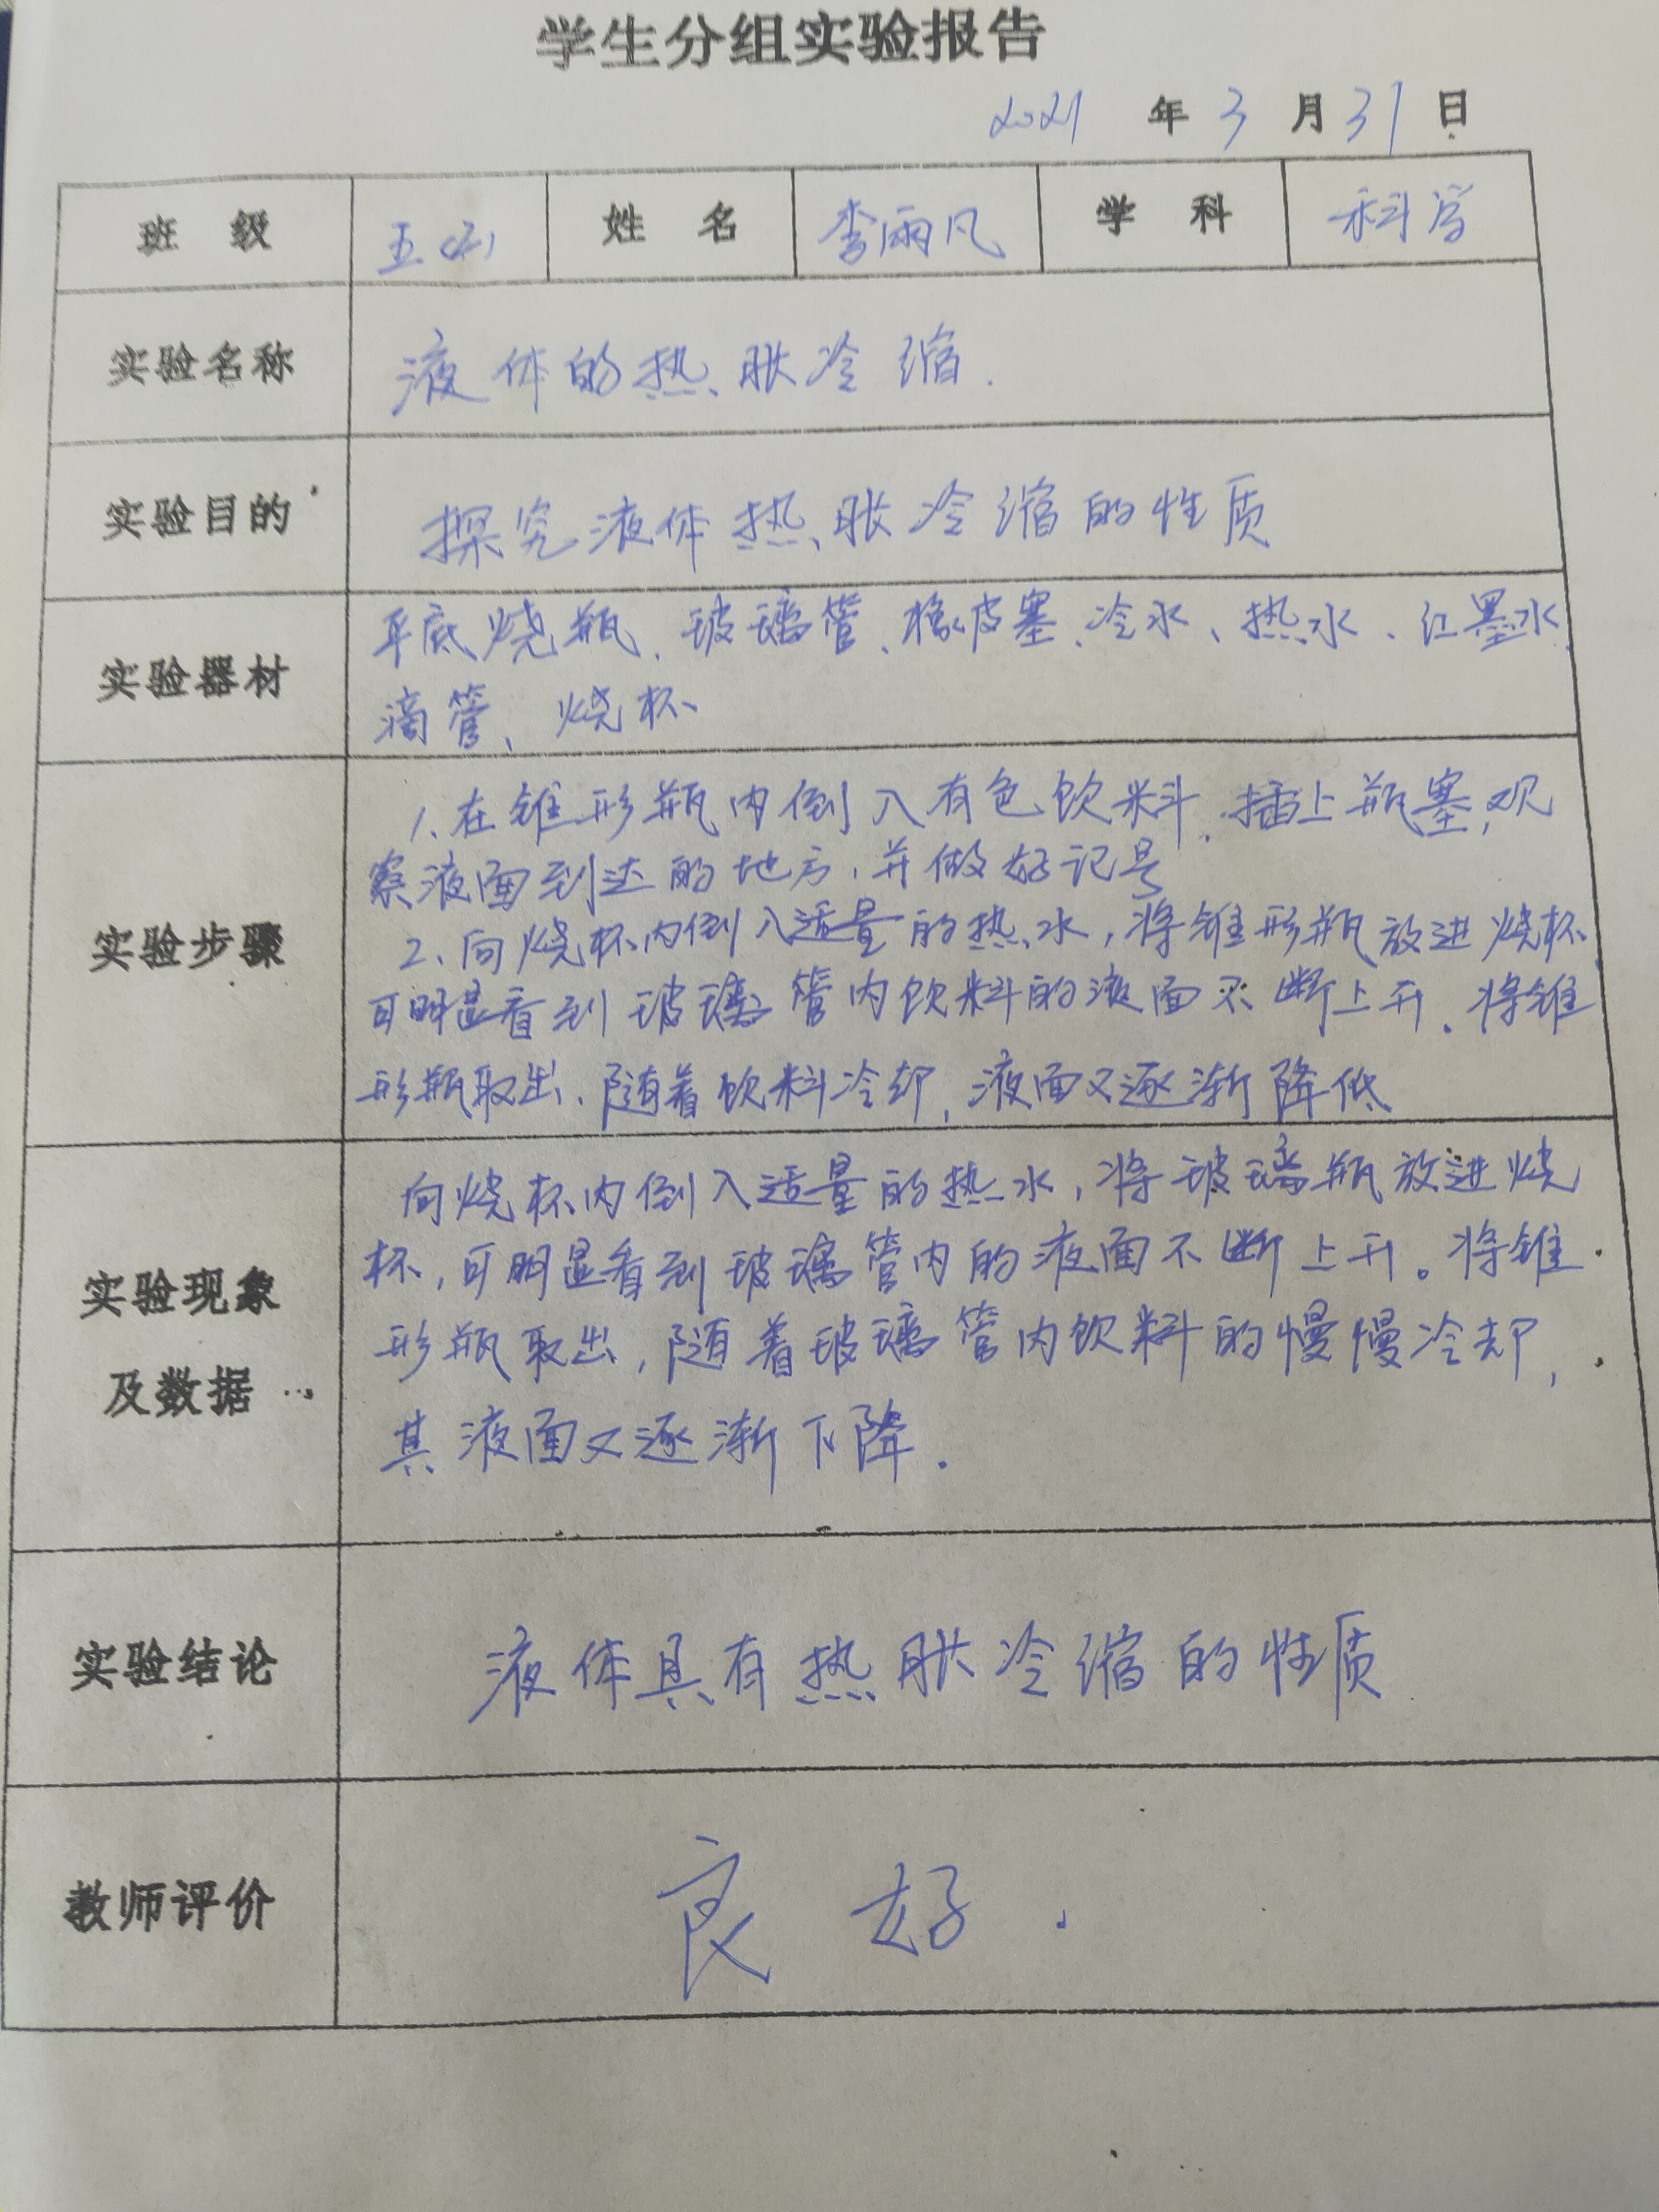 学生分组实验报告
2021 年 3 月 31 日
班 级 姓 名 李雨凡 学 科 科学
实验名称 液体的热胀冷缩.
实验目的 探究液体热胀冷缩的性质
实验器材
平底烧瓶、玻璃管、橡皮塞、冷水、热水、红墨水、
滴管、烧杯
实验步骤
1、在锥形瓶内倒入有色饮料,插上瓶塞,观
察液面到达的地方,并做好记号
2、向烧杯内倒入适量的热水,将锥形瓶放进烧杯,
可明显看到玻璃管内饮料的液面不断上升。将锥
形瓶取出、随着饮料冷却,液面又逐渐降低
实验现象
及数据
向烧杯内倒入适量的热水,将玻璃瓶放进烧
杯,可明显看到玻璃管内的液面不断上升。将锥
形瓶取出,随着玻璃管内饮料的慢慢冷却,
其液面又逐渐下降.
实验结论 液体具有热胀冷缩的性质
教师评价 良好.